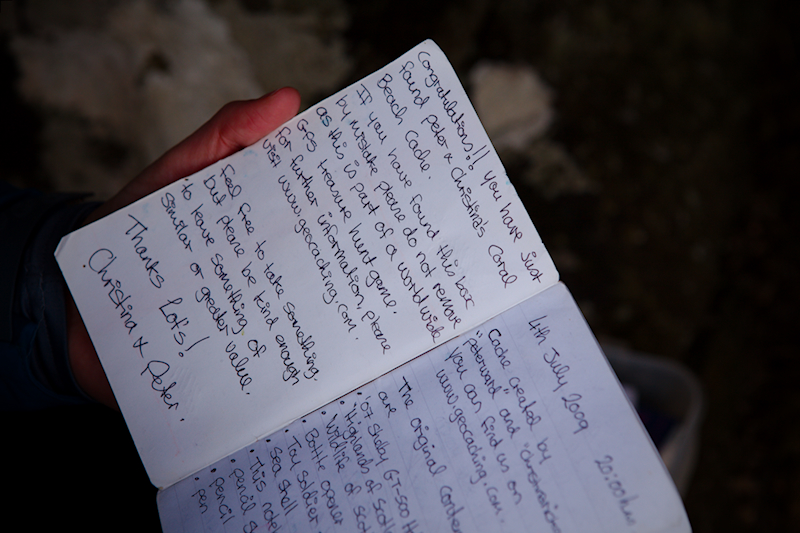 Congratulations!! you have just
found peter & Christina's Coral
Beach Cache.
If you have found this box
by mistake please do not remove
as this is part of a worldwide
GPS treasure hunt game.
for further information, please
visit www.geocaching.com.
Feel free to take something.
but please be kind enough
to leave something of
similar or greater value.
Thanks Lots!
Christina & Peter.
4th July 2009
Cache created by
"peterward" and
you can find us on
www.geocaching.com.
The original
are
'67 Shelby GT-500
Highlands of
Wildlife of
Bottle opener
Toy soldier
Sea shell
This
pencil
pencil
pen